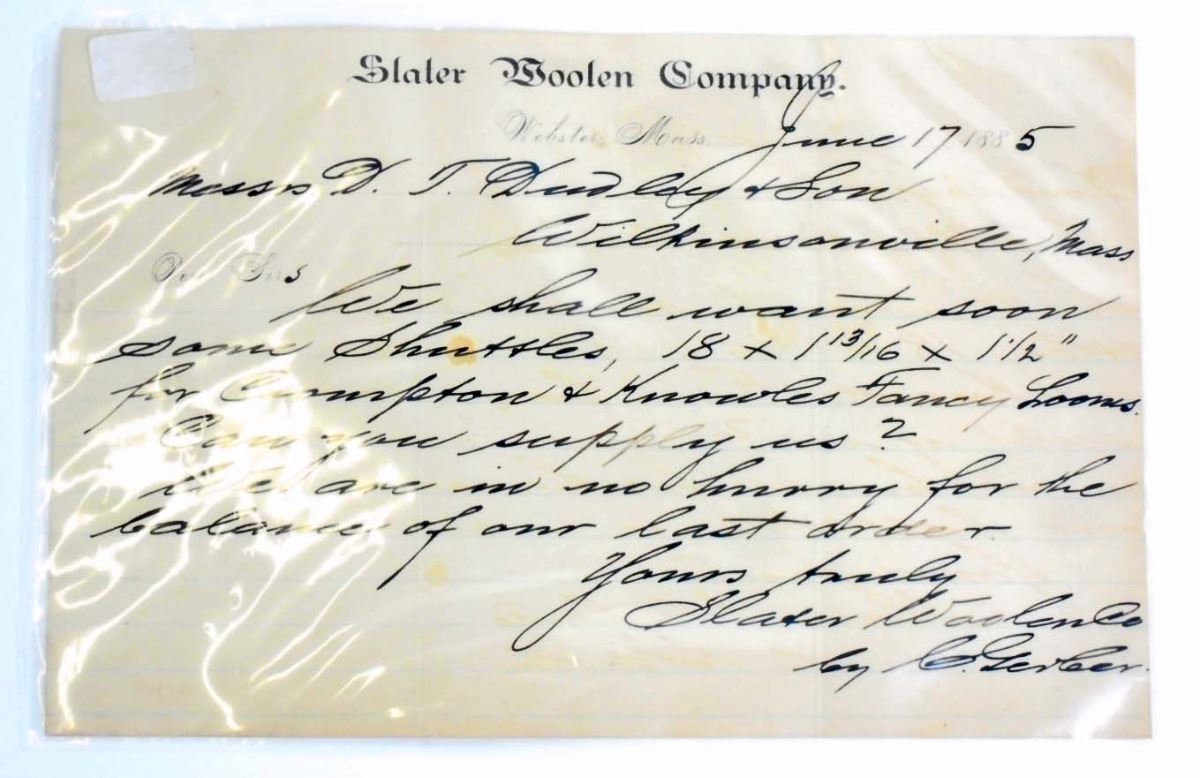 Slater Woolen Company.
Webster, Mass. June 17 1885
Messrs D. T. Dudley & Son
Wilkinsonville, Mass
Sirs
We shall want soon
some Shuttles, 18 x 1 13/16 x 1 1/2"
for Crompton & Knowles Fancy Looms.
Can you supply us?
We are in no hurry for the
balance of our last order.
Yours truly
Slater Woolen Co
by C. Gerber.